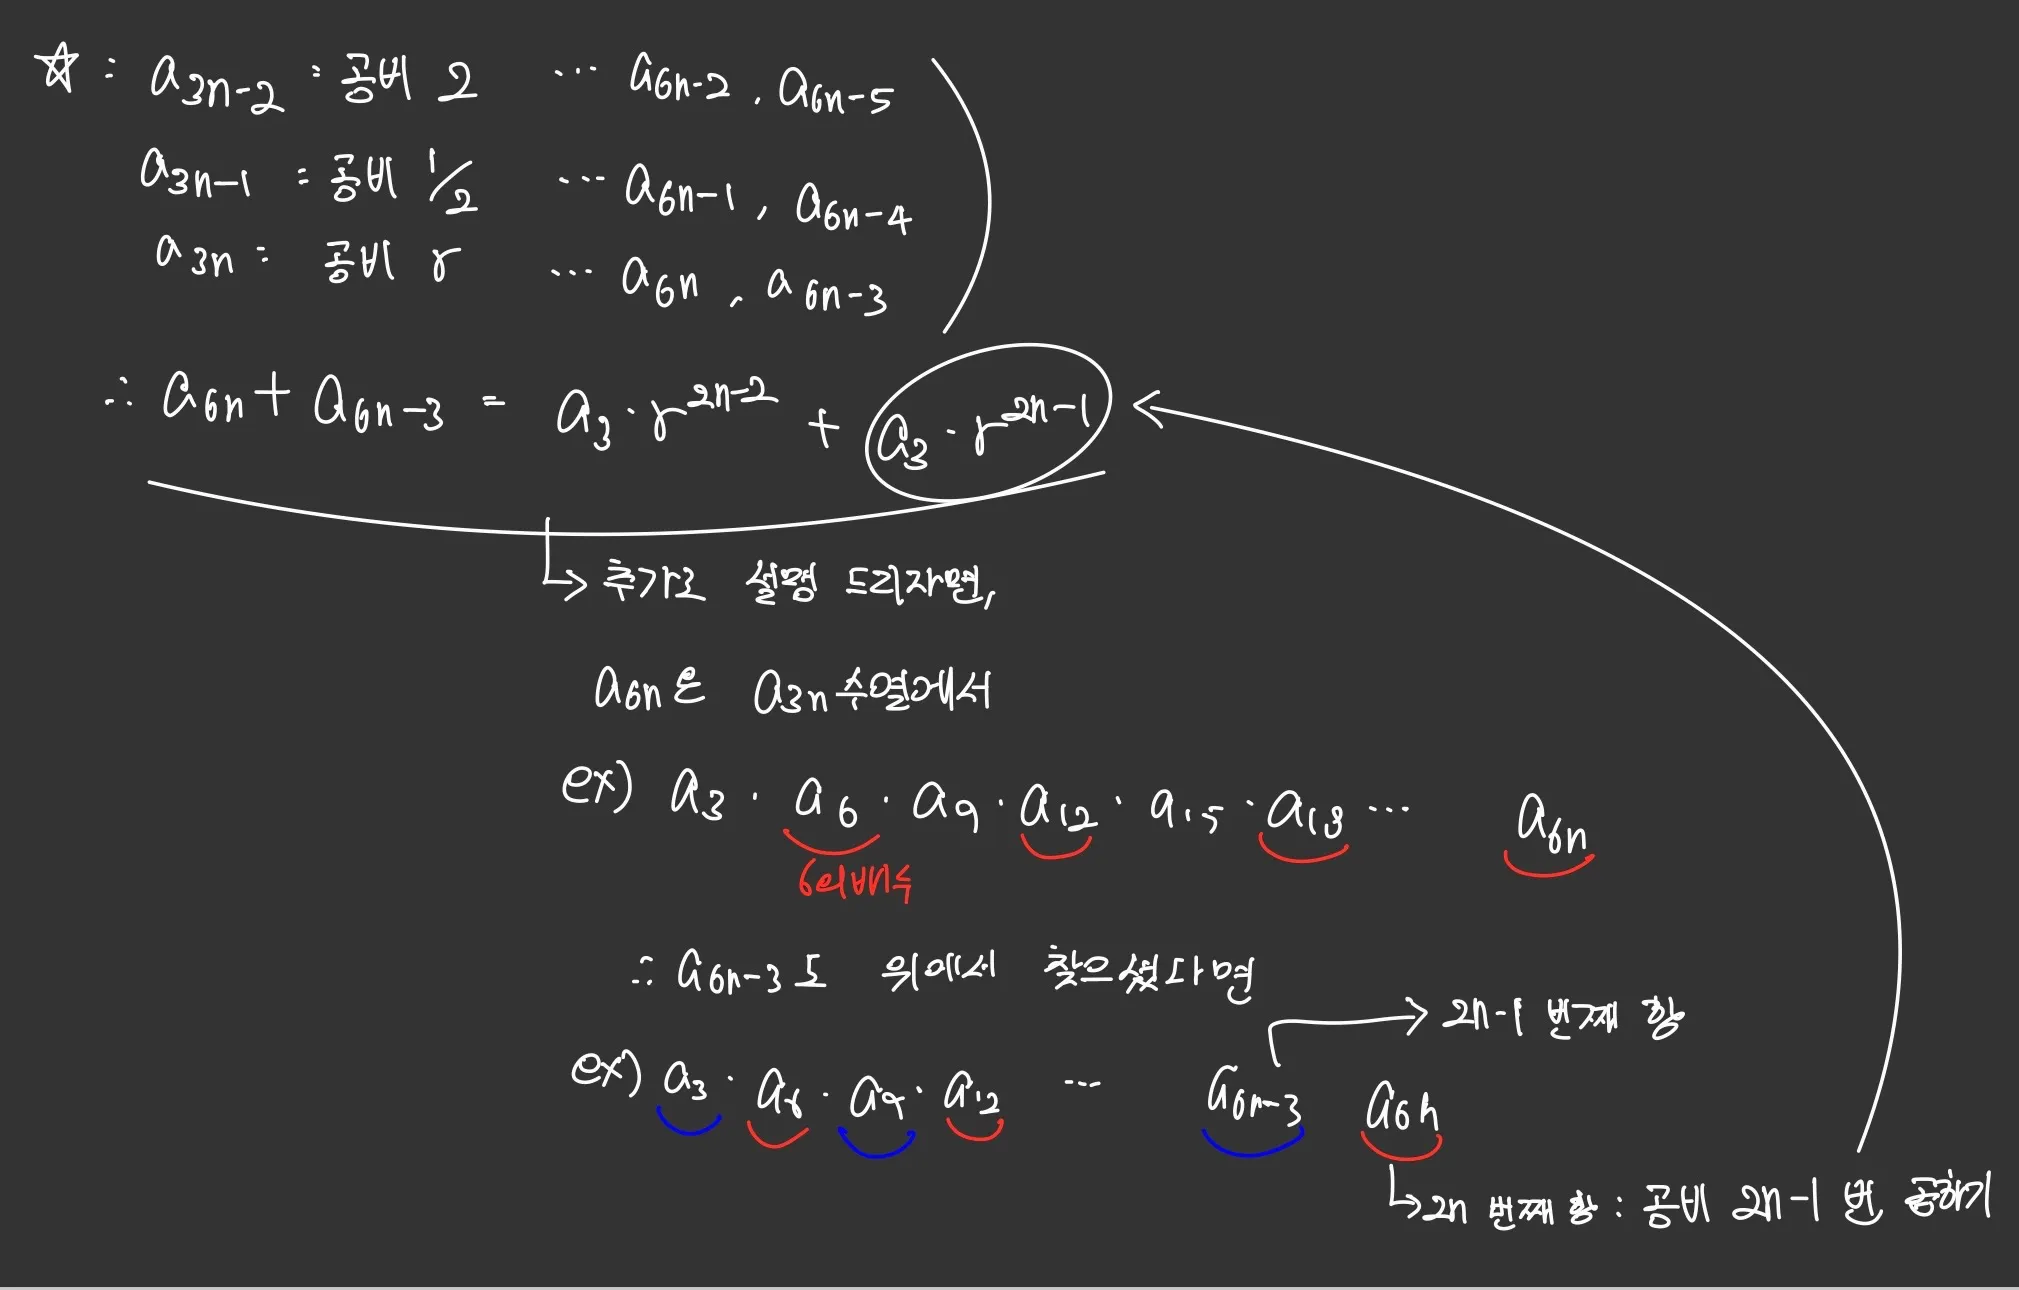 ☆ : a3n-2 : 공비 2 ... a6n-2, a6n-5
a3n-1 : 공비 1/2 ... a6n-1, a6n-4
a3n : 공비 r ... a6n, a6n-3
∴ a6n + a6n-3 = a3 · r^2n-2 + a3 · r^2n-1
↳ 추가로 설명 드리자면,
a6n은 a3n수열에서
ex) a3 · a6 · a9 · a12 · a15 · a18 ... a6n
6의배수
∴ a6n-3도 위에서 찾으셨다면
→ 2n-1 번째 항
ex) a3 · a6 · a9 · a12 ... a6n-3 a6n
↳ 2n 번째 항 : 공비 2n-1 번 곱하기